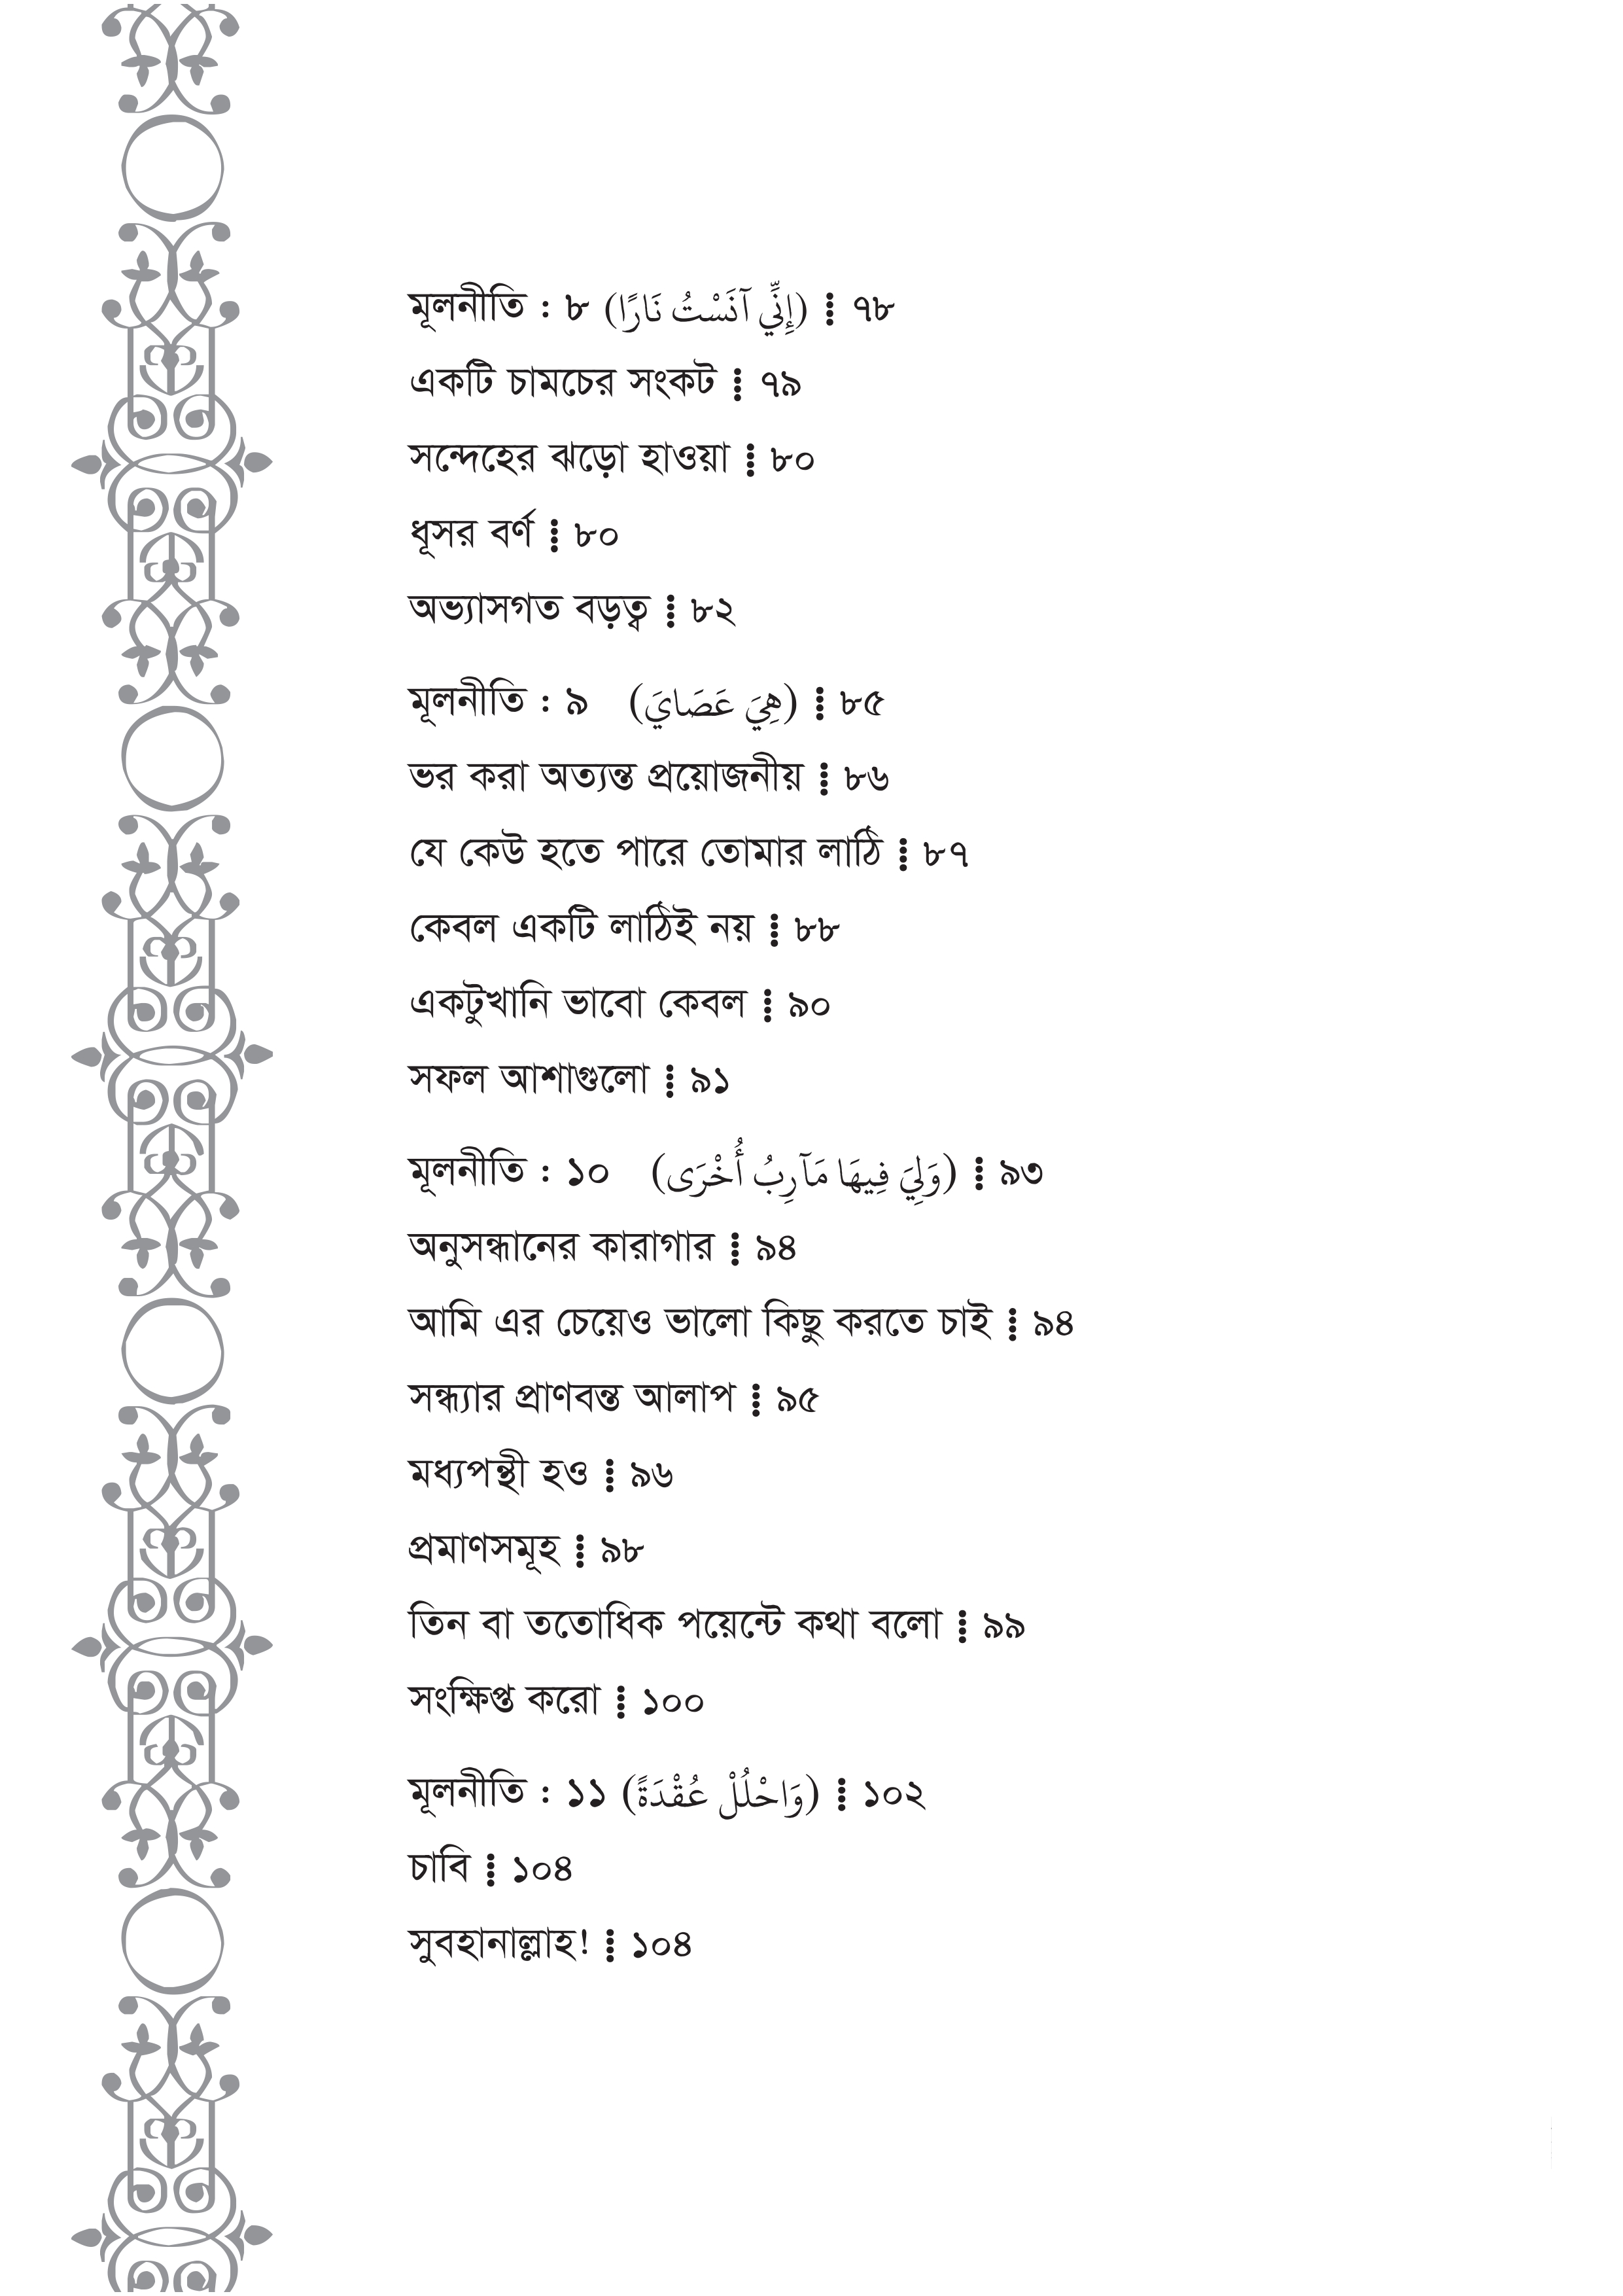 মূলনীতি : ৮ (إِنِّي آنَسْتُ نَارًا) ⁞ ৭৮
একটি চামচের সংকট ⁞ ৭৯
সন্দেহের ঝড়ো হাওয়া ⁞ ৮০
ধূসর বর্ণ ⁞ ৮০
অভ্যাসগত বড়ত্ব ⁞ ৮২
মূলনীতি : ৯ (هِيَ عَصَايَ) ⁞ ৮৫
ভর করা অত্যন্ত প্রয়োজনীয় ⁞ ৮৬
যে কেউ হতে পারে তোমার লাঠি ⁞ ৮৭
কেবল একটি লাঠিই নয় ⁞ ৮৮
একটুখানি ভাবো কেবল ⁞ ৯০
সফল আশাগুলো ⁞ ৯১
মূলনীতি : ১০ (وَلِيَ فِيهَا مَآرِبُ أُخْرَى) ⁞ ৯৩
অনুসন্ধানের কারাগার ⁞ ৯৪
আমি এর চেয়েও ভালো কিছু করতে চাই ⁞ ৯৪
সন্ধ্যার প্রাণবন্ত আলাপ ⁞ ৯৫
মধ্যপন্থী হও ⁞ ৯৬
প্রমাণসমূহ ⁞ ৯৮
তিন বা ততোধিক পয়েন্টে কথা বলো ⁞ ৯৯
সংক্ষিপ্ত করো ⁞ ১০০
মূলনীতি : ১১ (وَاحْلُلْ عُقْدَةً) ⁞ ১০২
চাবি ⁞ ১০৪
সুবহানাল্লাহ! ⁞ ১০৪